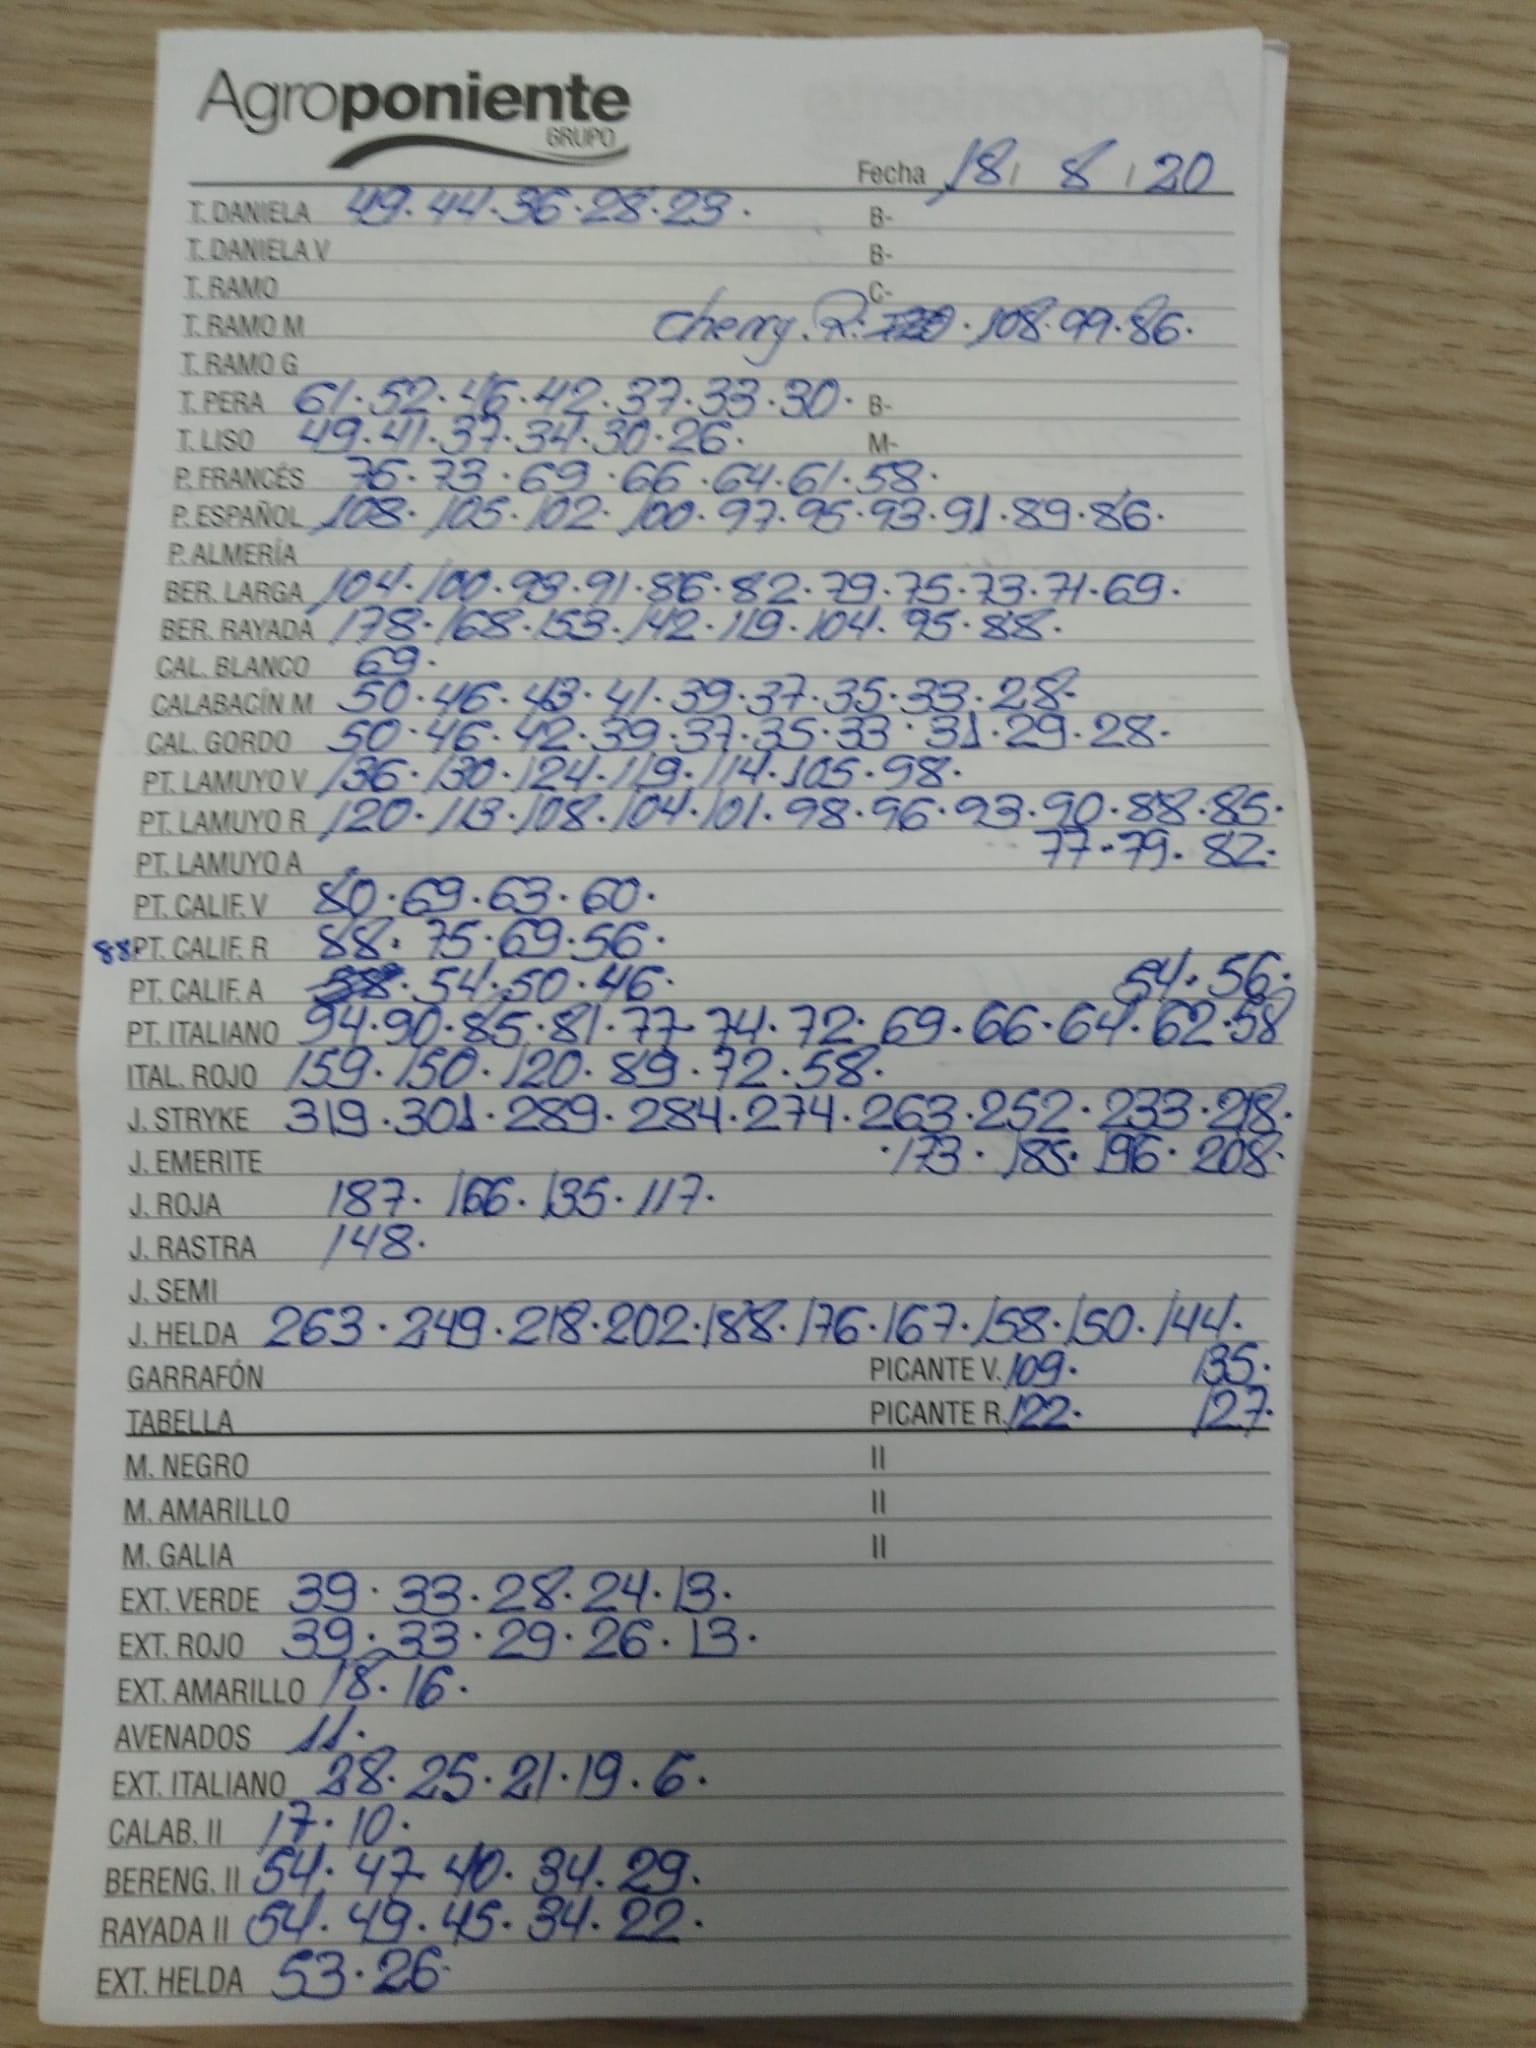 Agroponiente
GRUPO
Fecha 18 / 8 / 20
T. DANIELA 49. 44. 36. 28. 23. B-
T. DANIELA V B-
T. RAMO C-
T. RAMO M Cherry. R. 120. 108. 99. 86.
T. RAMO G
T. PERA 61. 52. 46. 42. 37. 33. 30. B-
T. LISO 49. 41. 37. 34. 30. 26. M-
P. FRANCÉS 76. 73. 69. 66. 64. 61. 58.
P. ESPAÑOL 108. 105. 102. 100. 97. 95. 93. 91. 89. 86.
P. ALMERÍA
BER. LARGA 104. 100. 93. 91. 86. 82. 79. 75. 73. 71. 69.
BER. RAYADA 178. 168. 153. 142. 119. 104. 95. 88.
CAL. BLANCO 69.
CALABACÍN M 50. 46. 43. 41. 39. 37. 35. 33. 28.
CAL. GORDO 50. 46. 42. 39. 37. 35. 33. 31. 29. 28.
PT. LAMUYO V 136. 130. 124. 119. 114. 105. 98.
PT. LAMUYO R 120. 113. 108. 104. 101. 98. 96. 93. 90. 88. 85.
PT. LAMUYO A 77. 79. 82.
PT. CALIF. V 80. 69. 63. 60.
88 PT. CALIF. R 88. 75. 69. 56.
PT. CALIF. A 54. 50. 46. 54. 56.
PT. ITALIANO 94. 90. 85. 81. 77. 74. 72. 69. 66. 64. 62. 58
ITAL. ROJO 159. 150. 120. 89. 72. 58.
J. STRYKE 319. 301. 289. 284. 274. 263. 252. 233. 218.
J. EMERITE .173. 185. 196. 208.
J. ROJA 187. 166. 135. 117.
J. RASTRA 148.
J. SEMI
J. HELDA 263. 249. 218. 202. 188. 176. 167. 158. 150. 144.
GARRAFÓN PICANTE V. 109. 135.
TABELLA PICANTE R. 122. 127.
M. NEGRO II
M. AMARILLO II
M. GALIA II
EXT. VERDE 39. 33. 28. 24. 13.
EXT. ROJO 39. 33. 29. 26. 13.
EXT. AMARILLO 18. 16.
AVENADOS 11.
EXT. ITALIANO 28. 25. 21. 19. 6.
CALAB. II 17. 10.
BERENG. II 54. 47. 40. 34. 29.
RAYADA II 54. 49. 45. 34. 22.
EXT. HELDA 53. 26.